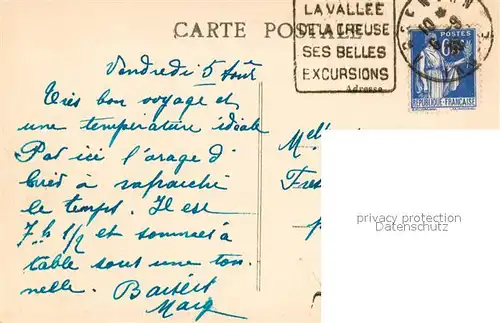 CARTE POSTALE
LA VALLÉE
DE LA CREUSE
SES BELLES
EXCURSIONS
Adresse
65
RÉPUBLIQUE FRANÇAISE
Vendredi 5 Août
Très bon voyage et
une température idéale
Par ici l'orage d'
hier à rafraichi
le temps. Il est
7h 1/2 et sommes à
table sous une ton
nelle. Baisers
Marg
Mell
Fres
privacy protection
Datenschutz